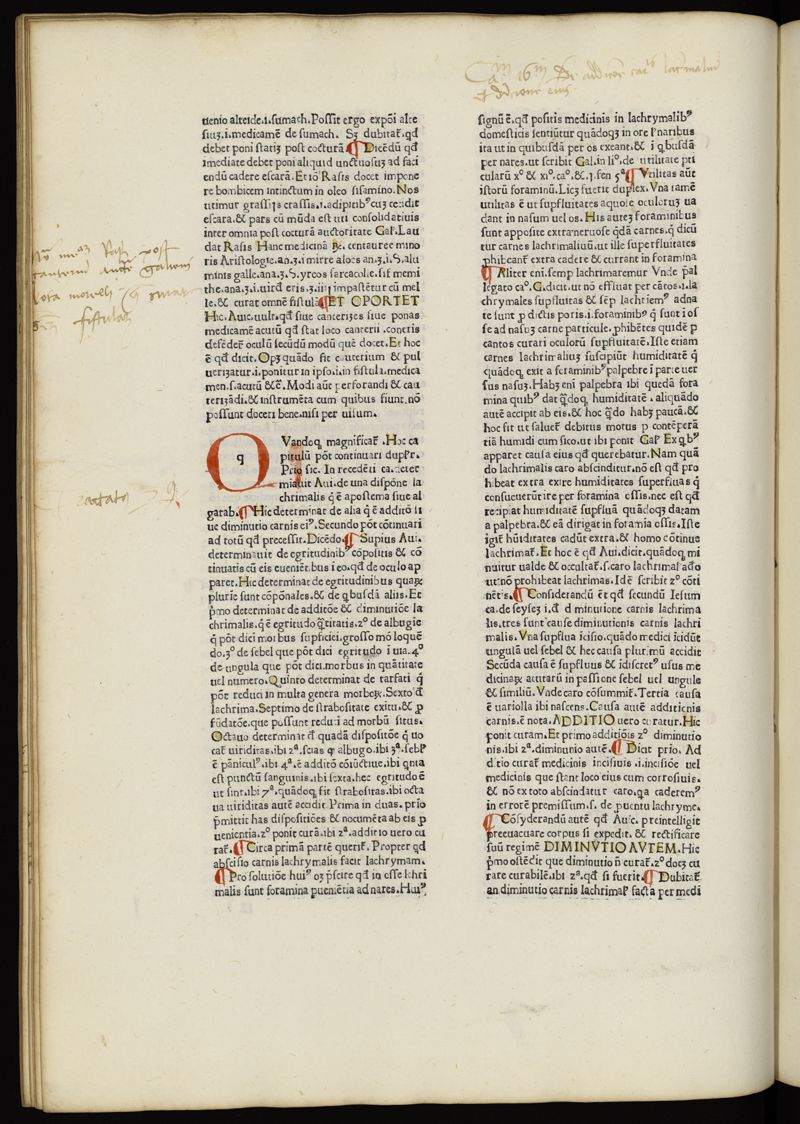 tienio alteide.i.sumach.Possit ergo expōi alte
siuʒ.i.medicamē de sumach. Sʒ dubitat͛.qđ
debet poni statiʒ post cocturā ¶ Dicēdū qđ
īmediate debet poni aliquid unctuosuʒ ad faci
endū cadere escarā.Et iō Rasis docet impone
re bombicem intinctum in oleo sisamino.Nos
utimur grassijs crassis.i.adipitib⁹ cuʒ cendit
escara.& pars cū mūda est uti consolidatiuis
inter omnia post cocturā auctoritate Gal̓.Lau
dat Rasis Hanc medicinā ꝶe.centauree mino
ris Aristologie.an.ʒ.i mirre aloes an.ʒ.i.S.alu
minis galle.ana.ʒ.S.yreos sarcacolle.sif memi
the.ana.ʒ.i.uird eris.ʒ.iiij impastētur cū mel
le.& curat omnē fistulā ¶ ET OPORTET
Hic.Auic.uult.qđ siue canterizes siue ponas
medicamē acutū qđ stat loco canterii.coneris
defēdeꝛ̄ oculū secūdū modū quē docet.Et hoc
ē qđ dicit.Opʒ quādo fit cauterium & pul
uerizatur.i.ponitur in ipso.i.in fistula.medica
men.s.acutū &c̄.Modi aūt perforandi & cau
terizādi.& instrumēta cum quibus fiunt.nō
possunt doceri bene.nisi per uisum.
q Vandoqʒ magnificat͛ .Hoc ca
pitulū pōt continuari dupꝉr.
Prio sic. In recedēti ca.deter
miauit Aui.de una dispōne la
chrimalis q̄ ē apostema siue al
garab. ¶ Hic determinat de alia q̄ ē additō it
uc diminutio carnis ei⁹.Secundo pōt cōtinuari
ad totū qđ precessit.Dicēdo. ¶ Supius Aui.
determinauit de egritudinib⁹ cōpositis & cō
tinuatis cū eis euenientibus i eo.qđ de oculo ap
paret.Hic determinat de egritudinibus quaꝝ
plurie sunt cōpōnales.& de qbusdā aliis.Et
pͥmo determinat de additōe & diminutiōe la
chrimalis.q̄ ē egritudo q̄titatis.2º de albugie
q̄ pōt dici morbus supficiei.grosso mō loquē
do.3º de sebel que pōt dici egritudo i uia.4º
de ungula que pōt dici.morbus in quātitate
uel numero.Quinto determinat de tarfati q̄
pōt reduci in multa genera morboꝝ.Sexto đ
lachrima.Septimo de strabositate exitu.& ꝓ
fūdatōe.que possunt reduci ad morbū situs.
Octauo determinat đ quadā dispositōe q̄ uo
cat͛ uiriditas.ibi 2ª.scias ꝙ albugo.ibi 3ª.sebl̓
ē pānicul⁹.ibi 4ª.ē additō cōiūctiue.ibi qͥnta
est punctū sanguinis.ibi sexta.hec egritudo ē
ut sint.ibi 7ª.quādoqʒ fit strabositas.ibi octa
ua uiriditas autē accidit Prima in duas. prio
p̄mittit has dispositiōes & nocumēta ab eis ꝓ
uenientia.2º ponit curā.ibi 2ª.additio uero cu
rat͛. ¶ Circa primā partē querit͛. Propter qđ
abscisio carnis lachrymalis facit lachrymam.
¶ Pro solutiōe hui⁹ oʒ p̄scire qđ in osse lachri
malis sunt foramina pueniētia ad nares.Hui⁹
Cam 16m De additione carnis lacrimalium
et diminutione eius
signū ē.qđ positis medicinis in lachrymalib⁹
domesticis sentiūtur quādoqʒ in ore ł naribus
ita ut in quibusdā per os exeant.& i qbusdā
per nares.ut scribit Gal.in li⁰.de utilitate pti
cularū xº & xiº.caº.&.j.fen 5ª ¶ Vtilitas aūt
istorū foraminū.Licʒ fuerit duplex.Vna tamē
utilitas ē ut supfluitates aquose oculoruʒ ua
dant in nasum uel os.His auteʒ foraminibus
sunt apposite extra neruose qđā carnes.q̄ dicū
tur carnes lachrimaliuʒ.ut ille superfluitates
phibeant͛ extra cadere & currant in foramina
¶ Aliter eni.semp lachrimaremur Vnde p̄al
legato caº.G.dicit.ut nō effluat per cātos.i.la
chrymales supfluitas & sēp lachriem⁹ adna
te sunt ꝓ dictis poris.i.foraminib⁹ q̄ sunt i os
se ad nasuʒ carne particule.phibētes quidē p
cantos curari oculorū supfluitatē.Iste etiam
carnes lachrimaliuʒ suscipiūt humiditatē q̄
quādoqʒ exit a foraminib⁹ palpebre ī parte uer
sus nasuʒ.Habʒ eni palpebra ibi quedā fora
mina quib⁹ dat q̄doqʒ humiditatē . aliquādo
autē accipit ab eis.& hoc q̄do habʒ paucā.&
hoc fit ut saluet͛ debitus motus p contēperā
tiā humidi cum sico.ut ibi ponit Gal̓ Ex qb⁹
apparet causa eius qđ querebatur.Nam quā
do lachrimalis caro abscinditur.nō est qđ pro
hibeat extra exire humiditates superfluas q̄
consueuerūt ire per foramina ossis.nec est qđ
recipiat humiditatē supfluā quādoqʒ datam
a palpebra.& eā dirigat in foramia ossis.Iste
igit͛ hūiditates cadūt extra.& homo cōtinue
lachrimat͛.Et hoc ē qđ Aui.dicit.quādoqʒ mi
nuitur ualde & occultat͛.s.caro lachrimal̓ adeo
ut nō prohibeat lachrimas.Idē scribit͛ 2º cōti
nētis. ¶ Considerandū ē qđ secundū Iesum
ca.de seyseʒ i.đ diminutione carnis lachrima
lis.tres sunt cause diminutionis carnis lachri
malis.Vna supflua icisio.quādo medici icidūt
ungulā uel sebel & hec causa plurimū accidit
Secūda causa ē supfluus & idiscret⁹ usus me
dicinaꝝ acutarū in passione sebel uel ungule
& similiū.Vnde caro cōsummit͛.Tertia causa
ē uariolla ibi nascens.Causa autē additionis
carnis.ē nota.ADDITIO uero curatur.Hic
ponit curam.Et primo additiōis 2º diminutio
nis.ibi 2ª.diminutio autē. ¶ Dicit prio. Ad
ditio curat͛ medicinis incisiuis .i.incisiōe uel
medicinis que stant loco eius cum corrosiuis.
& nō ex toto abscindatur caro.qa caderem⁹
in errorē premissum.s. de puentu lachryme.
¶ Cōsyderandū autē qđ Auic. preintelligit
preeuacuare corpus si expedit.& rectificare
suū regimē DIMINVTIO AVTEM. Hic
pͥmo ostēdit que diminutio nō curat͛.2º docʒ cu
rare curabilē.ibi 2ª.qđ si fuerit. ¶ Dubitat͛
an diminutio carnis lachrimal̓ facta per medi